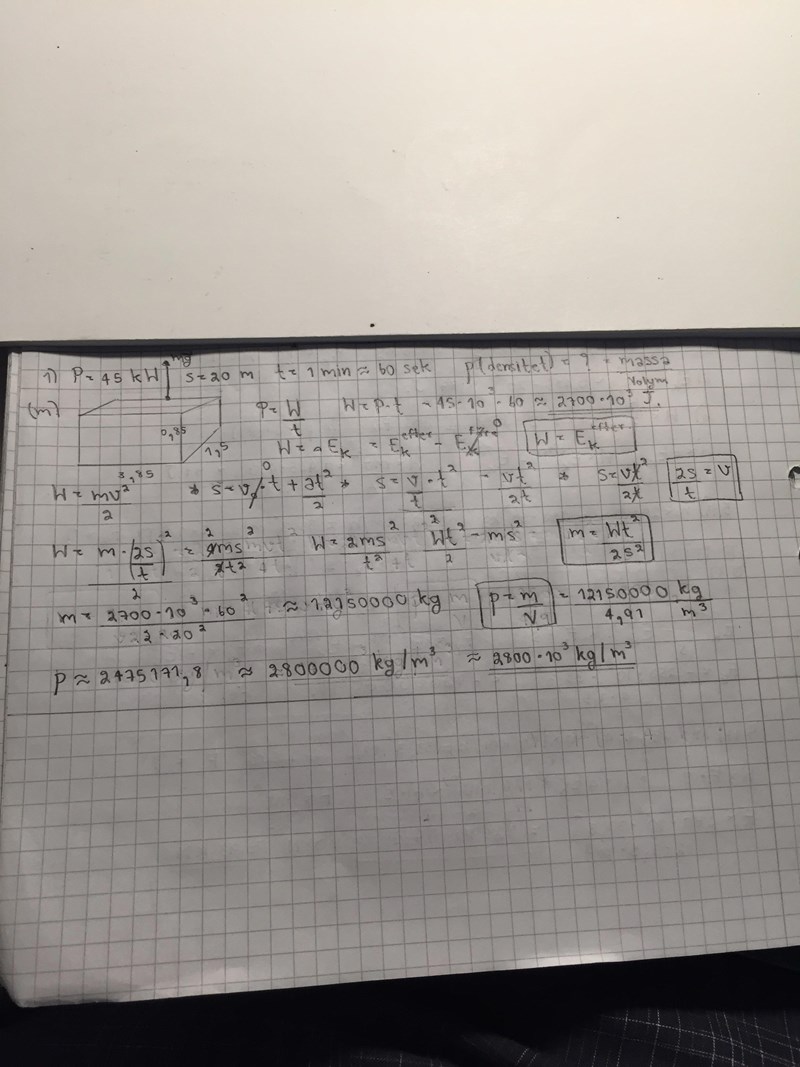 1) P = 45 kW mg s = 20 m t = 1 min ≈ 60 sek ρ(densitet) = ? = massa/Volym
(m) 0,85 1,5 3,85 P = W/t W = P·t = 45·10³·60 ≈ 2700·10³ J.
W = ΔE_k = E_k^efter - E_k^före 0 W = E_k^efter
W = mv²/2 * s = v₀·t + at²/2 * s = v/t · t²/2 = vt²/2t * s = vt²/2t 2s/t = v
W = m·(2s/t)²/2 = 4ms²/2t² W = 2ms²/t² Wt²/2 = ms² m = Wt²/2s²
m = 2700·10³·60²/2·20² ≈ 12150000 kg ρ = m/V = 12150000/4,91 kg/m³
ρ ≈ 2475171,8 ≈ 2800000 kg/m³ ≈ 2800·10³ kg/m³